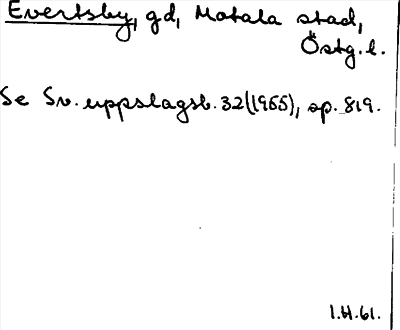 Evertsby, gd, Motala stad,
Östg. l.
Se Sv. uppslagsb. 32 (1955), sp. 819.
1.H.61.